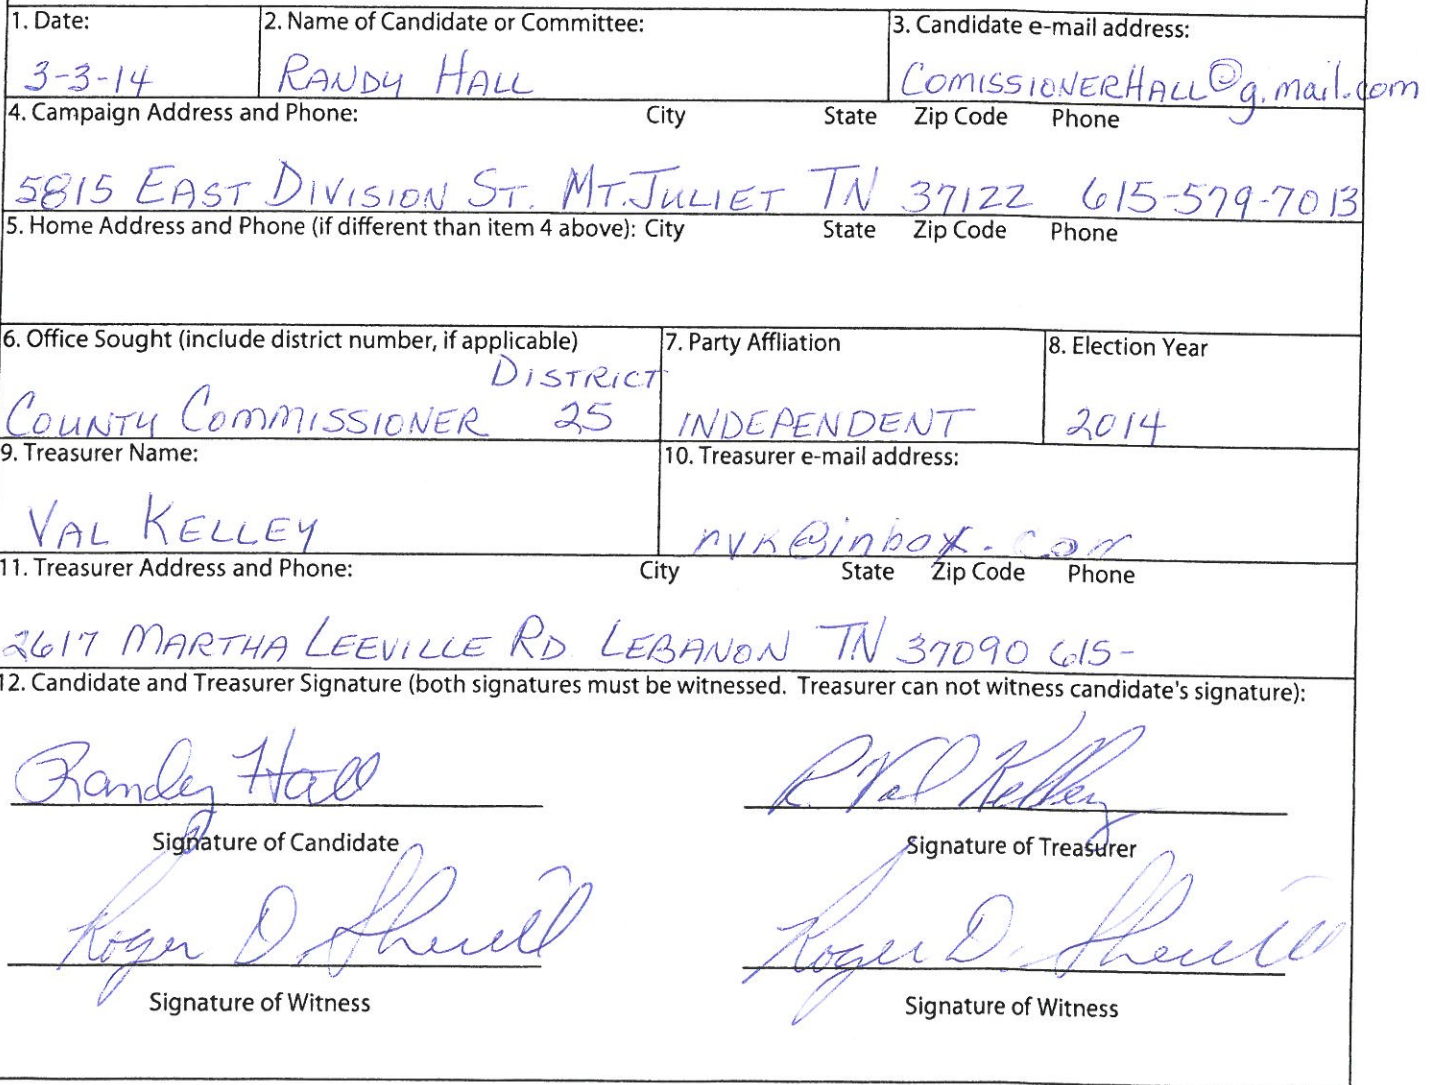 1. Date: 2. Name of Candidate or Committee: 3. Candidate e-mail address:
3-3-14 RANDY HALL COMISSIONERHALL@g.mail.com
4. Campaign Address and Phone: City State Zip Code Phone
5815 EAST DIVISION ST. MT. JULIET TN 37122 615-579-7013
5. Home Address and Phone (if different than item 4 above): City State Zip Code Phone
6. Office Sought (include district number, if applicable) 7. Party Affliation 8. Election Year
DISTRICT
COUNTY COMMISSIONER 25 INDEPENDENT 2014
9. Treasurer Name: 10. Treasurer e-mail address:
VAL KELLEY rvk@inbox.com
11. Treasurer Address and Phone: City State Zip Code Phone
2617 MARTHA LEEVILLE RD LEBANON TN 37090 615-
12. Candidate and Treasurer Signature (both signatures must be witnessed. Treasurer can not witness candidate's signature):
Randy Hall R. Val Kelley
Signature of Candidate Signature of Treasurer
Roger D. Sherrill Roger D. Sherrill
Signature of Witness Signature of Witness